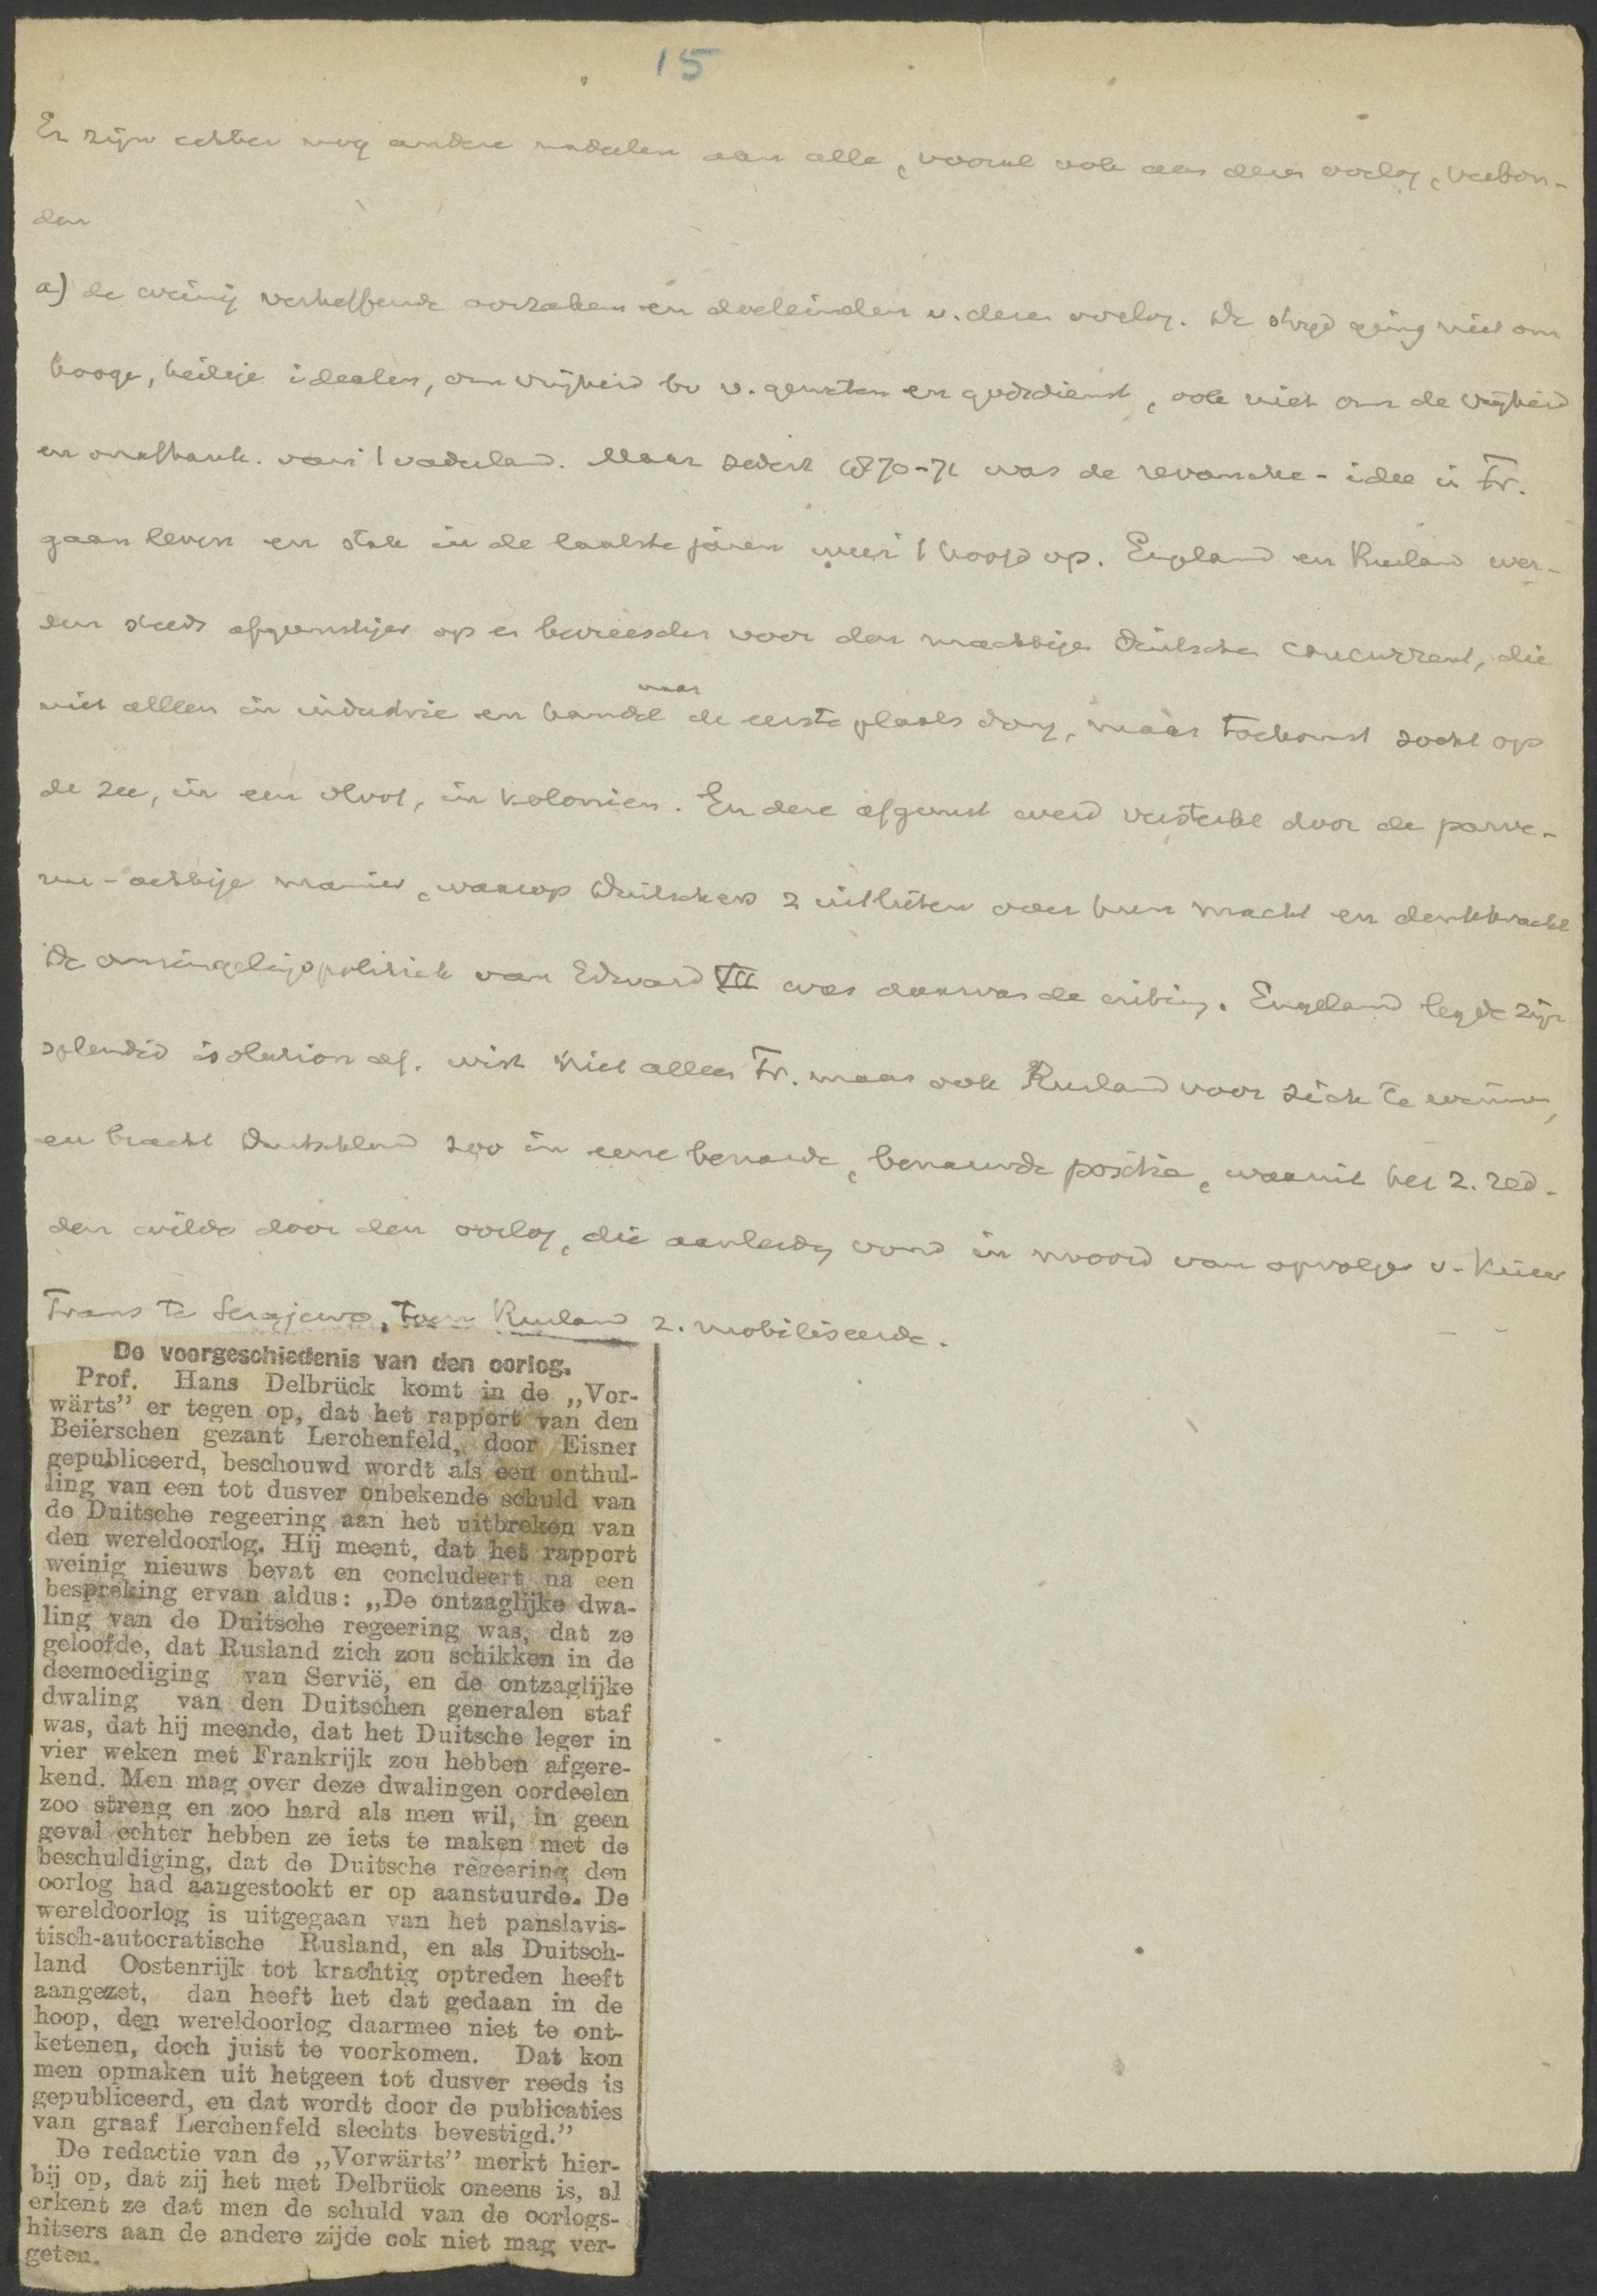 15
Er zijn echter nog andere nadeelen aan alle, vooral ook aan dezen oorlog, verbon-
den
a) de weinig verheffende oorzaken en doeleinden v. dezen oorlog. De strijd ging niet om
hooge, heilige idealen, om vrijheid bv v. geweten en godsdienst, ook niet om de vrijheid
en onafhank. van 't vaderland. Maar sedert 1870-71 was de revanche-idee in Fr.
gaan leven en stak in de laatste jaren weer 't hoofd op. Engeland en Rusland wer-
den steeds afgunstiger op en bevreesder voor den machtigen Duitschen concurrent, die
niet alleen in industrie en handel naar de eerste plaats dong, maar toekomst zocht op
de zee, in een vloot, in kolonien. En deze afgunst werd versterkt door de parve-
nu-achtige manier, waarop Duitschers z uitlieten over hun macht en denkkracht
De omsingelingspolitiek van Edward VII was daarvan de uiting. Engeland legde zijn
splendid isolation af, wist niet alleen Fr. maar ook Rusland voor zich te winnen,
en bracht Duitschland zoo in eene benarde, benauwde positie, waaruit het z. red-
den wilde door den oorlog, die aanleidg vond in moord van opvolger v. Keizer
Frans te Serajewo, toen Rusland z. mobiliseerde.
De voorgeschiedenis van den oorlog.
Prof. Hans Delbrück komt in de „Vor-
wärts” er tegen op, dat het rapport van den
Beierschen gezant Lerchenfeld, door Eisner
gepubliceerd, beschouwd wordt als een onthul-
ling van een tot dusver onbekende schuld van
de Duitsche regeering aan het uitbreken van
den wereldoorlog. Hij meent, dat het rapport
weinig nieuws bevat en concludeert na een
bespreking ervan aldus: „De ontzaglijke dwa-
ling van de Duitsche regeering was, dat ze
geloofde, dat Rusland zich zou schikken in de
deemoediging van Servië, en de ontzaglijke
dwaling van den Duitschen generalen staf
was, dat hij meende, dat het Duitsche leger in
vier weken met Frankrijk zou hebben afgere-
kend. Men mag over deze dwalingen oordeelen
zoo streng en zoo hard als men wil, in geen
geval echter hebben ze iets te maken met de
beschuldiging, dat de Duitsche regeering den
oorlog had aangestookt er op aanstuurde. De
wereldoorlog is uitgegaan van het panslavis-
tisch-autocratische Rusland, en als Duitsch-
land Oostenrijk tot krachtig optreden heeft
aangezet, dan heeft het dat gedaan in de
hoop, den wereldoorlog daarmee niet te ont-
ketenen, doch juist te voorkomen. Dat kon
men opmaken uit hetgeen tot dusver reeds is
gepubliceerd, en dat wordt door de publicaties
van graaf Lerchenfeld slechts bevestigd.”
De redactie van de „Vorwärts” merkt hier-
bij op, dat zij het met Delbrück oneens is, al
erkent ze dat men de schuld van de oorlogs-
hitsers aan de andere zijde ook niet mag ver-
geten.